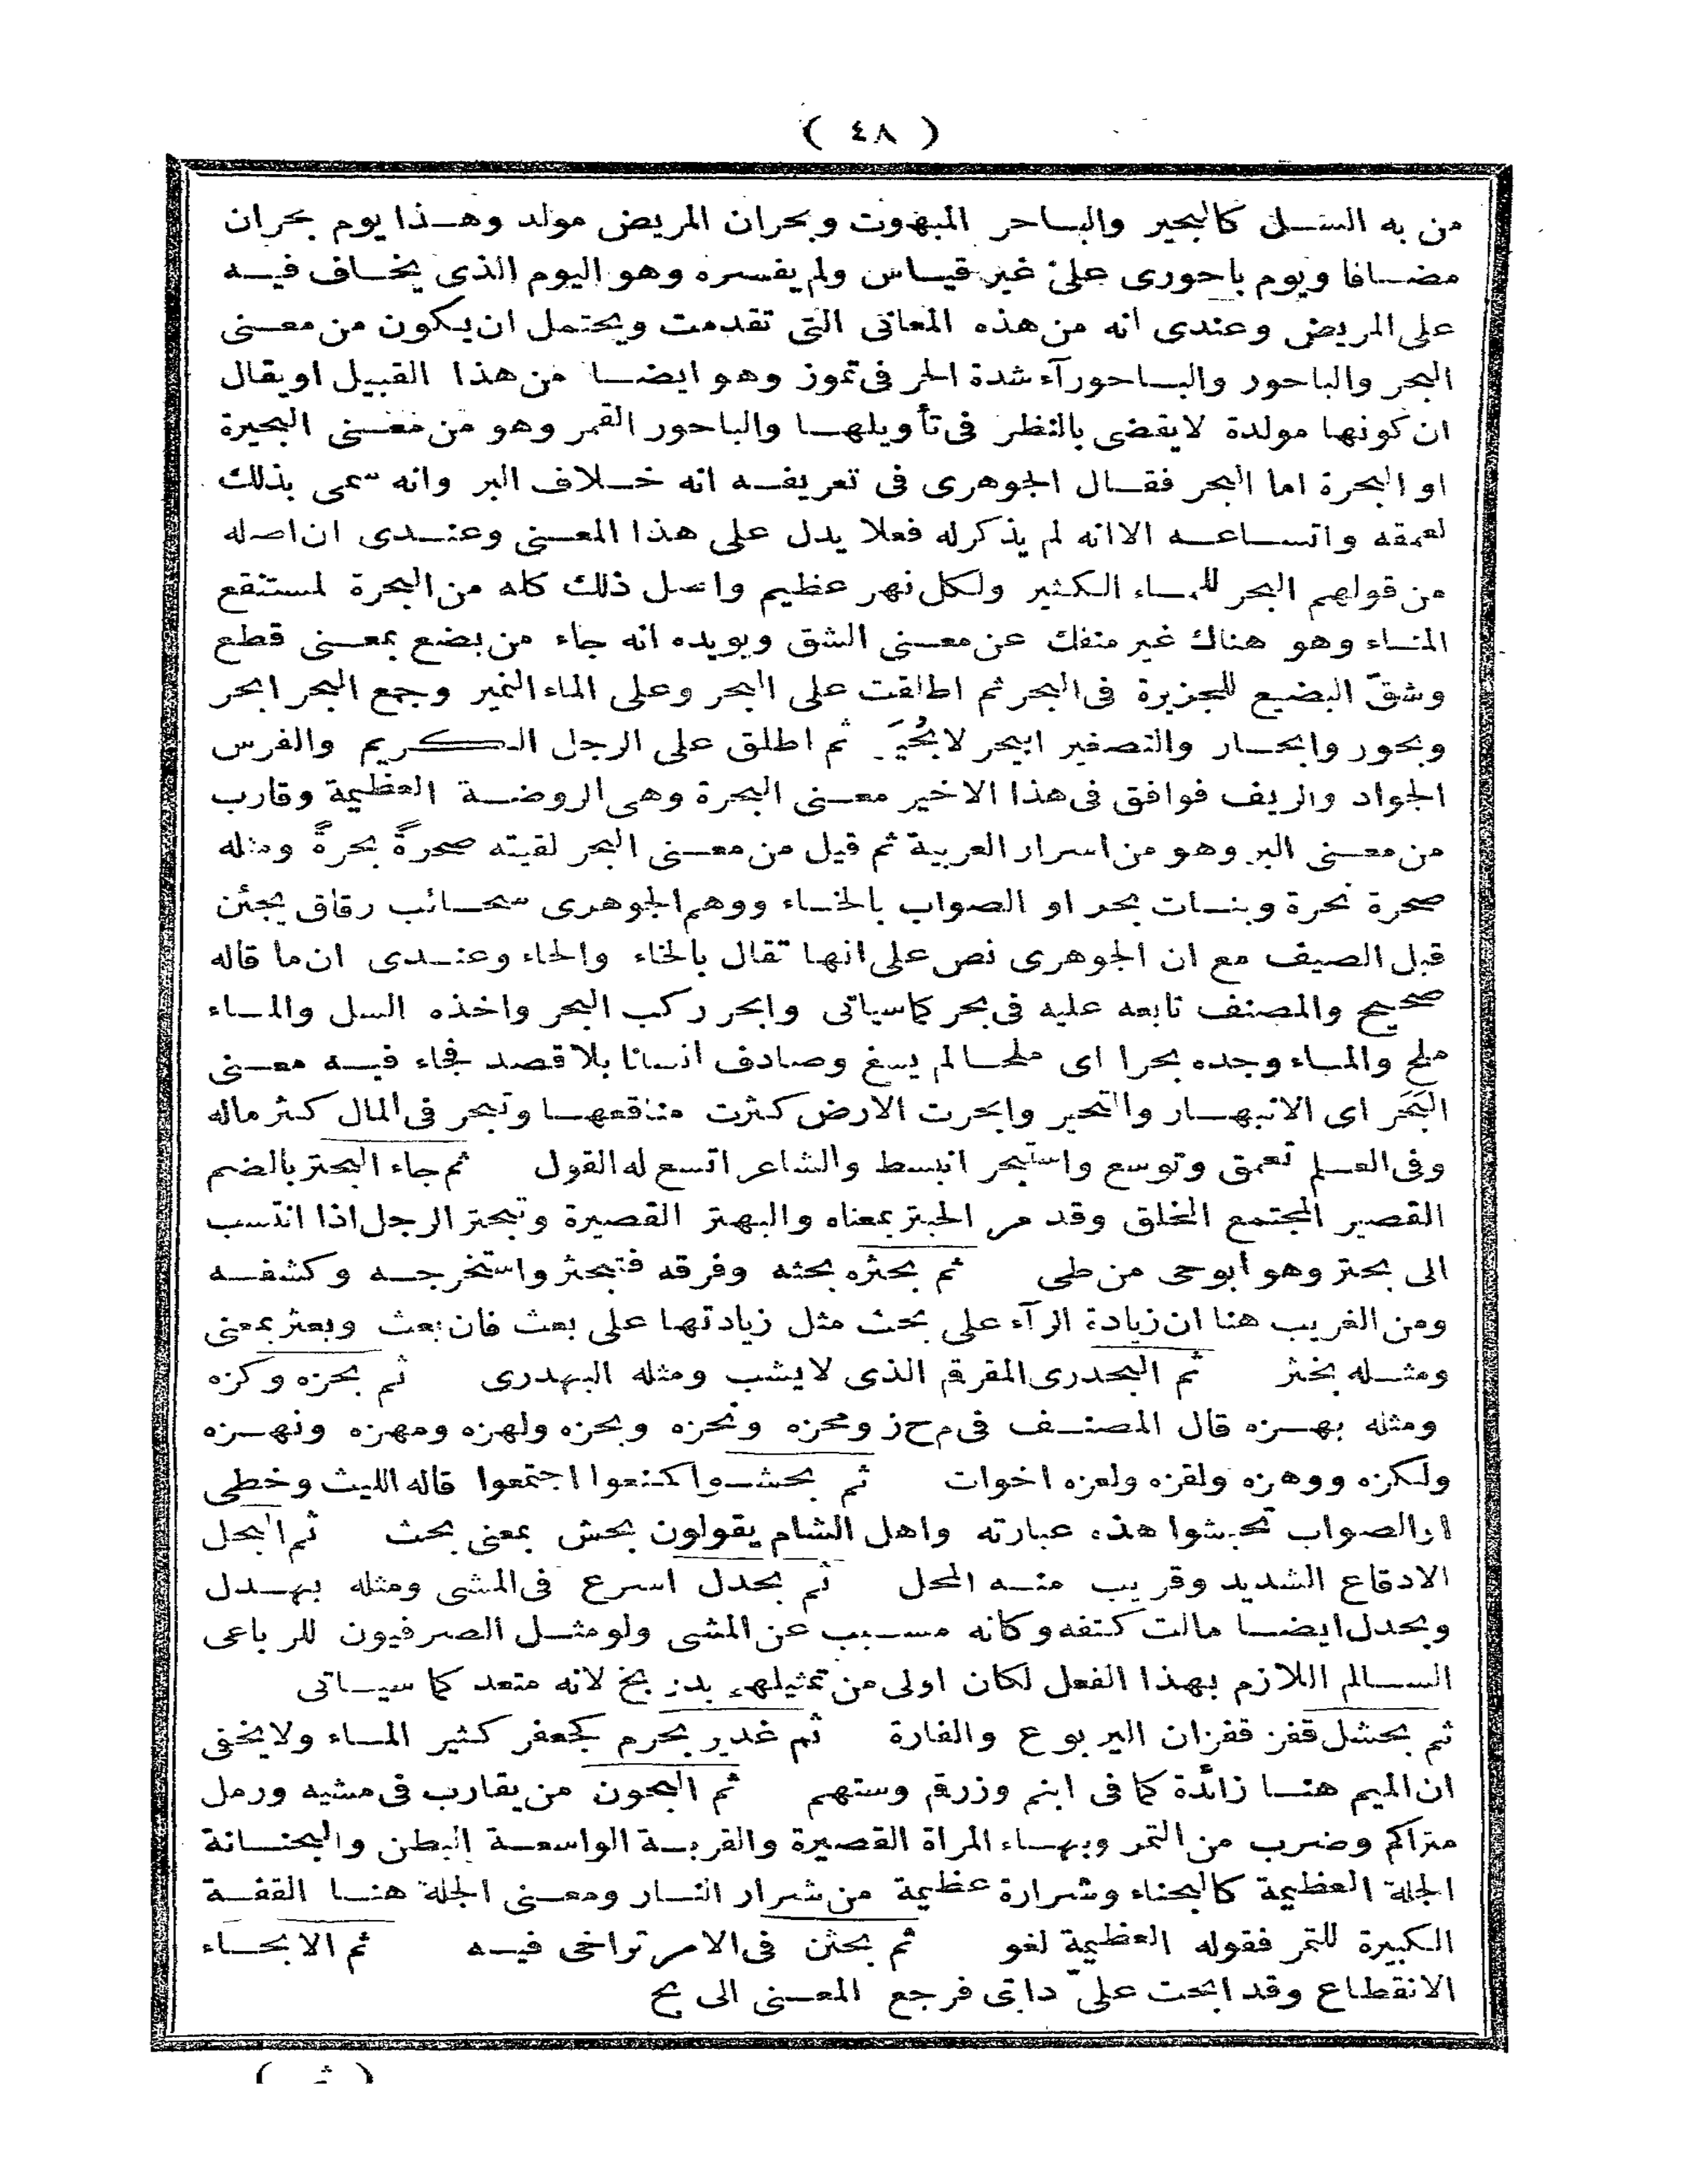 ( ٤٨ )
من به السل كالبحير والباحر المبهوت وبحران المريض مولد وهذا يوم بحران
مضافا ويوم باحورى على غير قياس ولم يفسره وهو اليوم الذى يخاف فيه
على المريض وعندى انه من هذه المعانى التى تقدمت ويحتمل ان يكون من معنى
البحر والباحور والباحورآء شدة الحر فى تموز وهو ايضا من هذا القبيل او يقال
ان كونها مولدة لا يقضى بالنظر فى تأويلها والباحور القمر وهو من معنى البحيرة
او البحرة اما البحر فقال الجوهرى فى تعريفه انه خلاف البر وانه سمى بذلك
لعمقه واتساعه الا انه لم يذكر له فعلا يدل على هذا المعنى وعندى ان اصله
من قولهم البحر للماء الكثير ولكل نهر عظيم واصل ذلك كله من البحرة لمستنقع
الماء وهو هناك غير منفك عن معنى الشق ويويده انه جاء من بضع بمعنى قطع
وشقّ البضيع للجزيرة فى البحر ثم اطلقت على البحر وعلى الماء النمير وجمع البحر ابحر
وبحور وابحار والتصغير ابيحر لا ثم اطلق على الرجل الكريم والفرس
الجواد والريف فوافق فى هذا الاخير معنى البحرة وهى الروضة العظيمة وقارب
من معنى البر وهو من اسرار العربية ثم قيل من معنى البحر لقيته صحرةً بحرةً ومثله
صحرة نحرة وبنات بحر او الصواب بالخاء ووهم الجوهرى سحائب رقاق يجئن
قبل الصيف مع ان الجوهرى نص على انها تقال بالخاء والحاء وعندى ان ما قاله
صحيح والمصنف تابعه عليه فى بحر كما سياتى وابحر ركب البحر واخذه السل والماء
ملح والماء وجده بحرا اى ملحا لم يسغ وصادف انسانا بلا قصد فجاء فيه معنى
البَحَر اى الانبهار والتحير وابحرت الارض كثرت مناقعها وتبحر فى المال كثر ماله
وفى العلم تعمق وتوسع واستبحر انبسط والشاعر اتسع له القول ثم جاء البحتر بالضم
القصير المجتمع الخلق وقد مر الحبتر بمعناه والبهتر القصيرة وتبحتر الرجل اذا انتسب
الى بحتر وهو أبوحى من طى ثم بحثره بحثه وفرقه فتبحثر واستخرجه وكشفه
ومن الغريب هنا ان زيادة الرآء على بحث مثل زيادتها على بعث فان بعث وبعثر بمعنى
ومثله بخثر ثم البحدرى المقرقم الذى لا يشب ومثله البهدرى ثم بحزه وكزه
ومثله بهزه قال المصنف فى م ح ز ومحزه ونحزه وبحزه ولهزه ومهزه ونهزه
ولكزه ووهزه ولقزه ولعزه اخوات ثم بحشوا كمنعوا اجتمعوا قاله الليث وخطى
او الصواب تحبشوا هذه عبارته واهل الشام يقولون بحش بمعنى بحث ثم البحل
الادقاع الشديد وقريب منه المحل ثم بحدل اسرع فى المشى ومثله بهدل
وبحدل ايضا مالت كتفه وكانه مسبب عن المشى ولو مثل الصرفيون للرباعى
السالم اللازم بهذا الفعل لكان اولى من تمثيلهم بدربخ لانه متعد كما سياتى
ثم بحشل قفز قفزان اليربوع والفارة ثم غدير بحرم كجعفر كثير الماء ولا يخفى
ان الميم هنا زائدة كما فى ابنم وزرقم وستهم ثم البحون من يقارب فى مشيه ورمل
متراكم وضرب من التمر وبهاء المراة القصيرة والقربة الواسعة البطن والبحنانة
الجلة العظيمة كالبحناء وشرارة عظيمة من شرار النار ومعنى الجلة هنا القفة
الكبيرة للتمر فقوله العظيمة لغو ثم بحثن فى الامر تراخى فيه ثم الابحاء
الانقطاع وقد ابحت علىّ دابتى فرجع المعنى الى بح